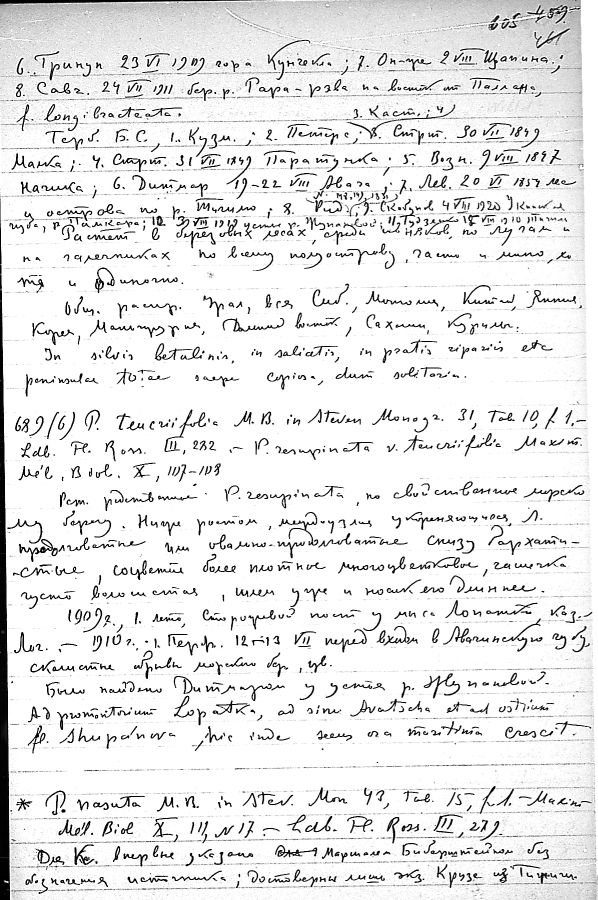 459.
6. Трипут 23 VI 1909 гора ; 7. 2 VIII Щапина;
8. Савч. 24 VII 1911 бер. р. на восток от
f. longibracteata.
Герб. Б.С., 1. Кузм.; 2. Петерс; 3. 30 VII 1849
Малка; 4. 31 VII 1849 Паратунка; 5. Возн. 9 VIII 1847
Начика; 6. Дитмар 19-22 VIII Авача; 7. Лев. 20 VI 1854
у острова по р. ; 8. Рид.; 9.
Растет в березовых лесах, среди ивняков, по лугам и
на галечниках по всему полуострову, часто и
и одиночно.
Общ. распр. Урал, вся Сиб., Монголия, Китай, Япония,
Корея, Манчжурия, Дальний восток, Сахалин, Курилы.
In silvis betulinis, in salicetis, in pratis ripariis etc
peninsulae totae saepe copiosa, dum solitaria.
689 (6) P. teucriifolia M.B. in Steven Monogr. 31, Tab. 10, f. 1,-
Ldb. Fl. Ross. III, 282 .- P. resupinata v. teucriifolia Maxim.
Mél. Biol. X, 107-108
Раст. родственное P. resupinata, но свойственное морско
му берегу. Ниже ростом, междоузлия укороченные, Л.
продолговатые или овально-продолговатые снизу бархати-
-стые, соцветие более плотное многоцветковое, чашечка
густо волосистая, шлем уже и носик его длиннее.
1909г., 1. лето, Сторожевой пост у мыса Лопатка, каз.
Лог. .- 1910г. 1. Перф. 12-13 VII перед входом в Авачинскую губу
скалистые обрывы морского бер., цв.
Было найдено Дитмаром у устья р. Жупановой.
Ad promontorium Lopatka, ad sinu Avatscha et ad ostium
fl. Shupanova, hic inde secus ora maritima crescit.
* P. nasuta M.B. in Stev. Mon 43, Tab. 15, f. 1.- Maxim
Mél. Biol X, 111, N 17 - Ldb. Fl. Ross. III, 279.
Для К. впервые указано Маршалом Биберштейном без
обозначения источника; достоверны лишь экз. Крузе из Тигиля